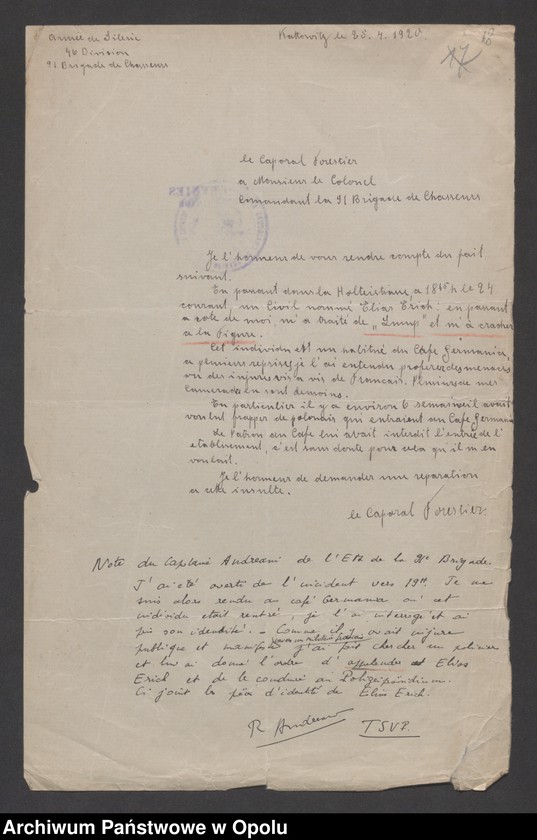 Armée de Silésie
46 Division
91 Brigade de Chasseurs
Kattowitz le 25. 4. 1920
le Caporal Forestier
a Monsieur le Colonel
Comandant la 91 Brigade de Chasseurs
Je l'honneur de vous rendre compte du fait
suivant.
En passant dans la Holteistrasse a 18 h le 24
courant, un Civil nommé Elias Erich; en passant
a coté de moi, m'a traité de „Lump" et m'a cracher
a la Figure.
Cet individu est un habitué du Café Germania,
a plusieurs reprises je l'ai entendu proferer des menaces
ou des injures vis a vis de Francais. Plusieurs de mes
Camarades en sont temoins.
En particulier il y a environ 6 semaines il avait
voulut frapper de polonais qui entraient au Cafe Germania
Le Patron du Café lui avait interdit l'entrée de l'
etablissement, c'est sans doute pour cela qu'il m'en
voulait.
Je l'honneur de demander une reparation
a cette insulte.
le Caporal Forestier.
Note du Capitaine Andreani de l'EM de la 91e Brigade.
J'ai été averti de l'incident vers 19h. Je me
suis alors rendu au café Germania où cet
individu était rentré, je l'ai interrogé et ai
pris son identité. - Comme il y avait injure
publique et manifeste j'ai fait chercher un policier
et lui ai donné l'ordre d'appréhender Elias
Erich et de le conduire au Polizeipräsidium.
Ci joint la pièce d'identité de Elias Erich.
R Andreani
TSVP.
Archiwum Państwowe w Opolu